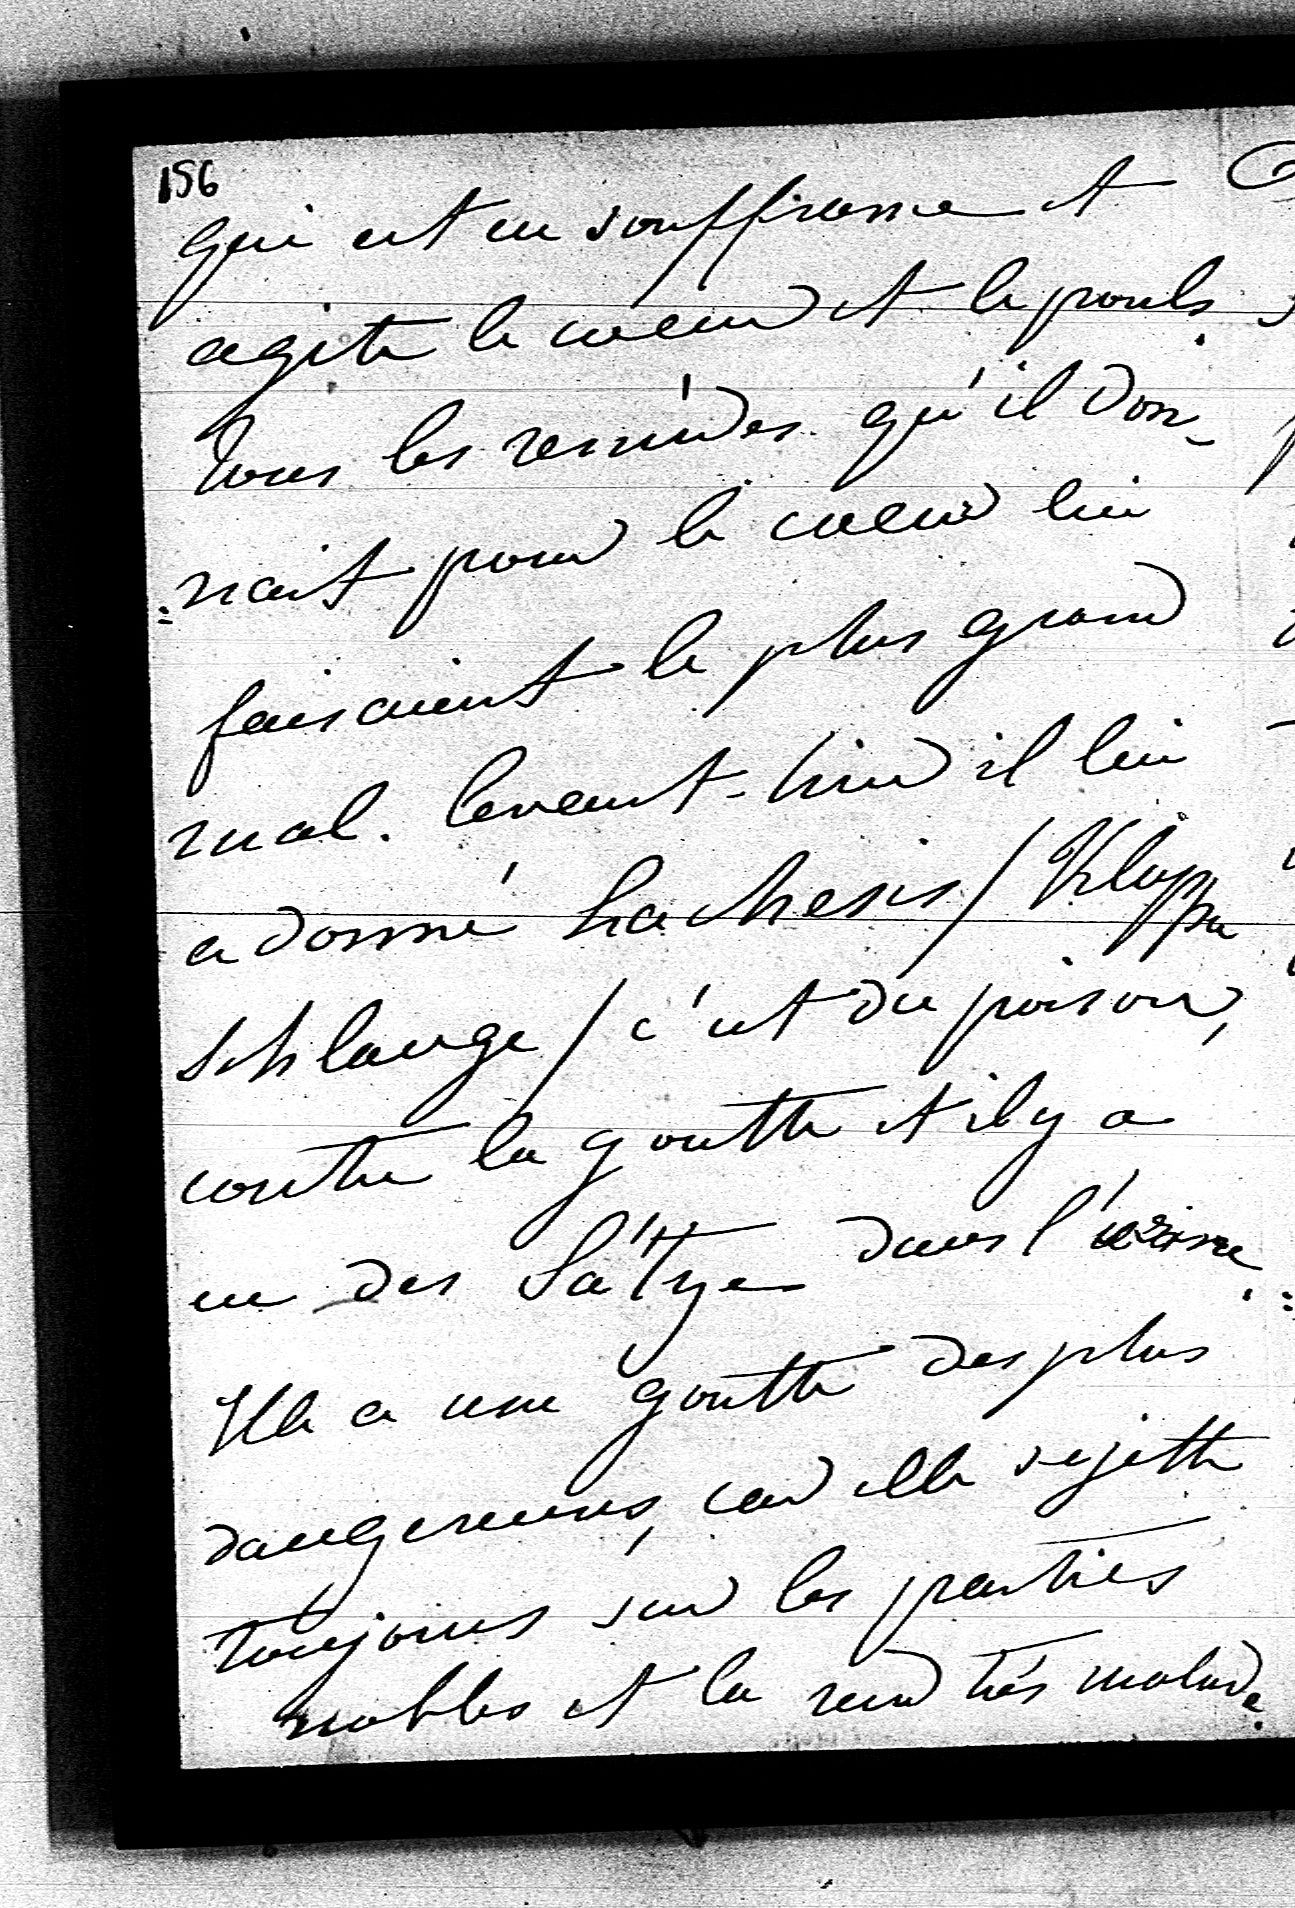 156
qui est en souffrance et
agite le coeur et le pouls.
Tous les remèdes qu'il don-
=nait pour le coeur lui
faisaient le plus grand
mal. Avant-hier il lui
a donné Lachesis / Klapper
schlange / c'est du poison,
contre la goutte et il y a
eu des Sätze dans l'urine.
Elle a une goutte des plus
dangereuses, car elle se jette
toujours sur les parties
nobles et la rend très malade.